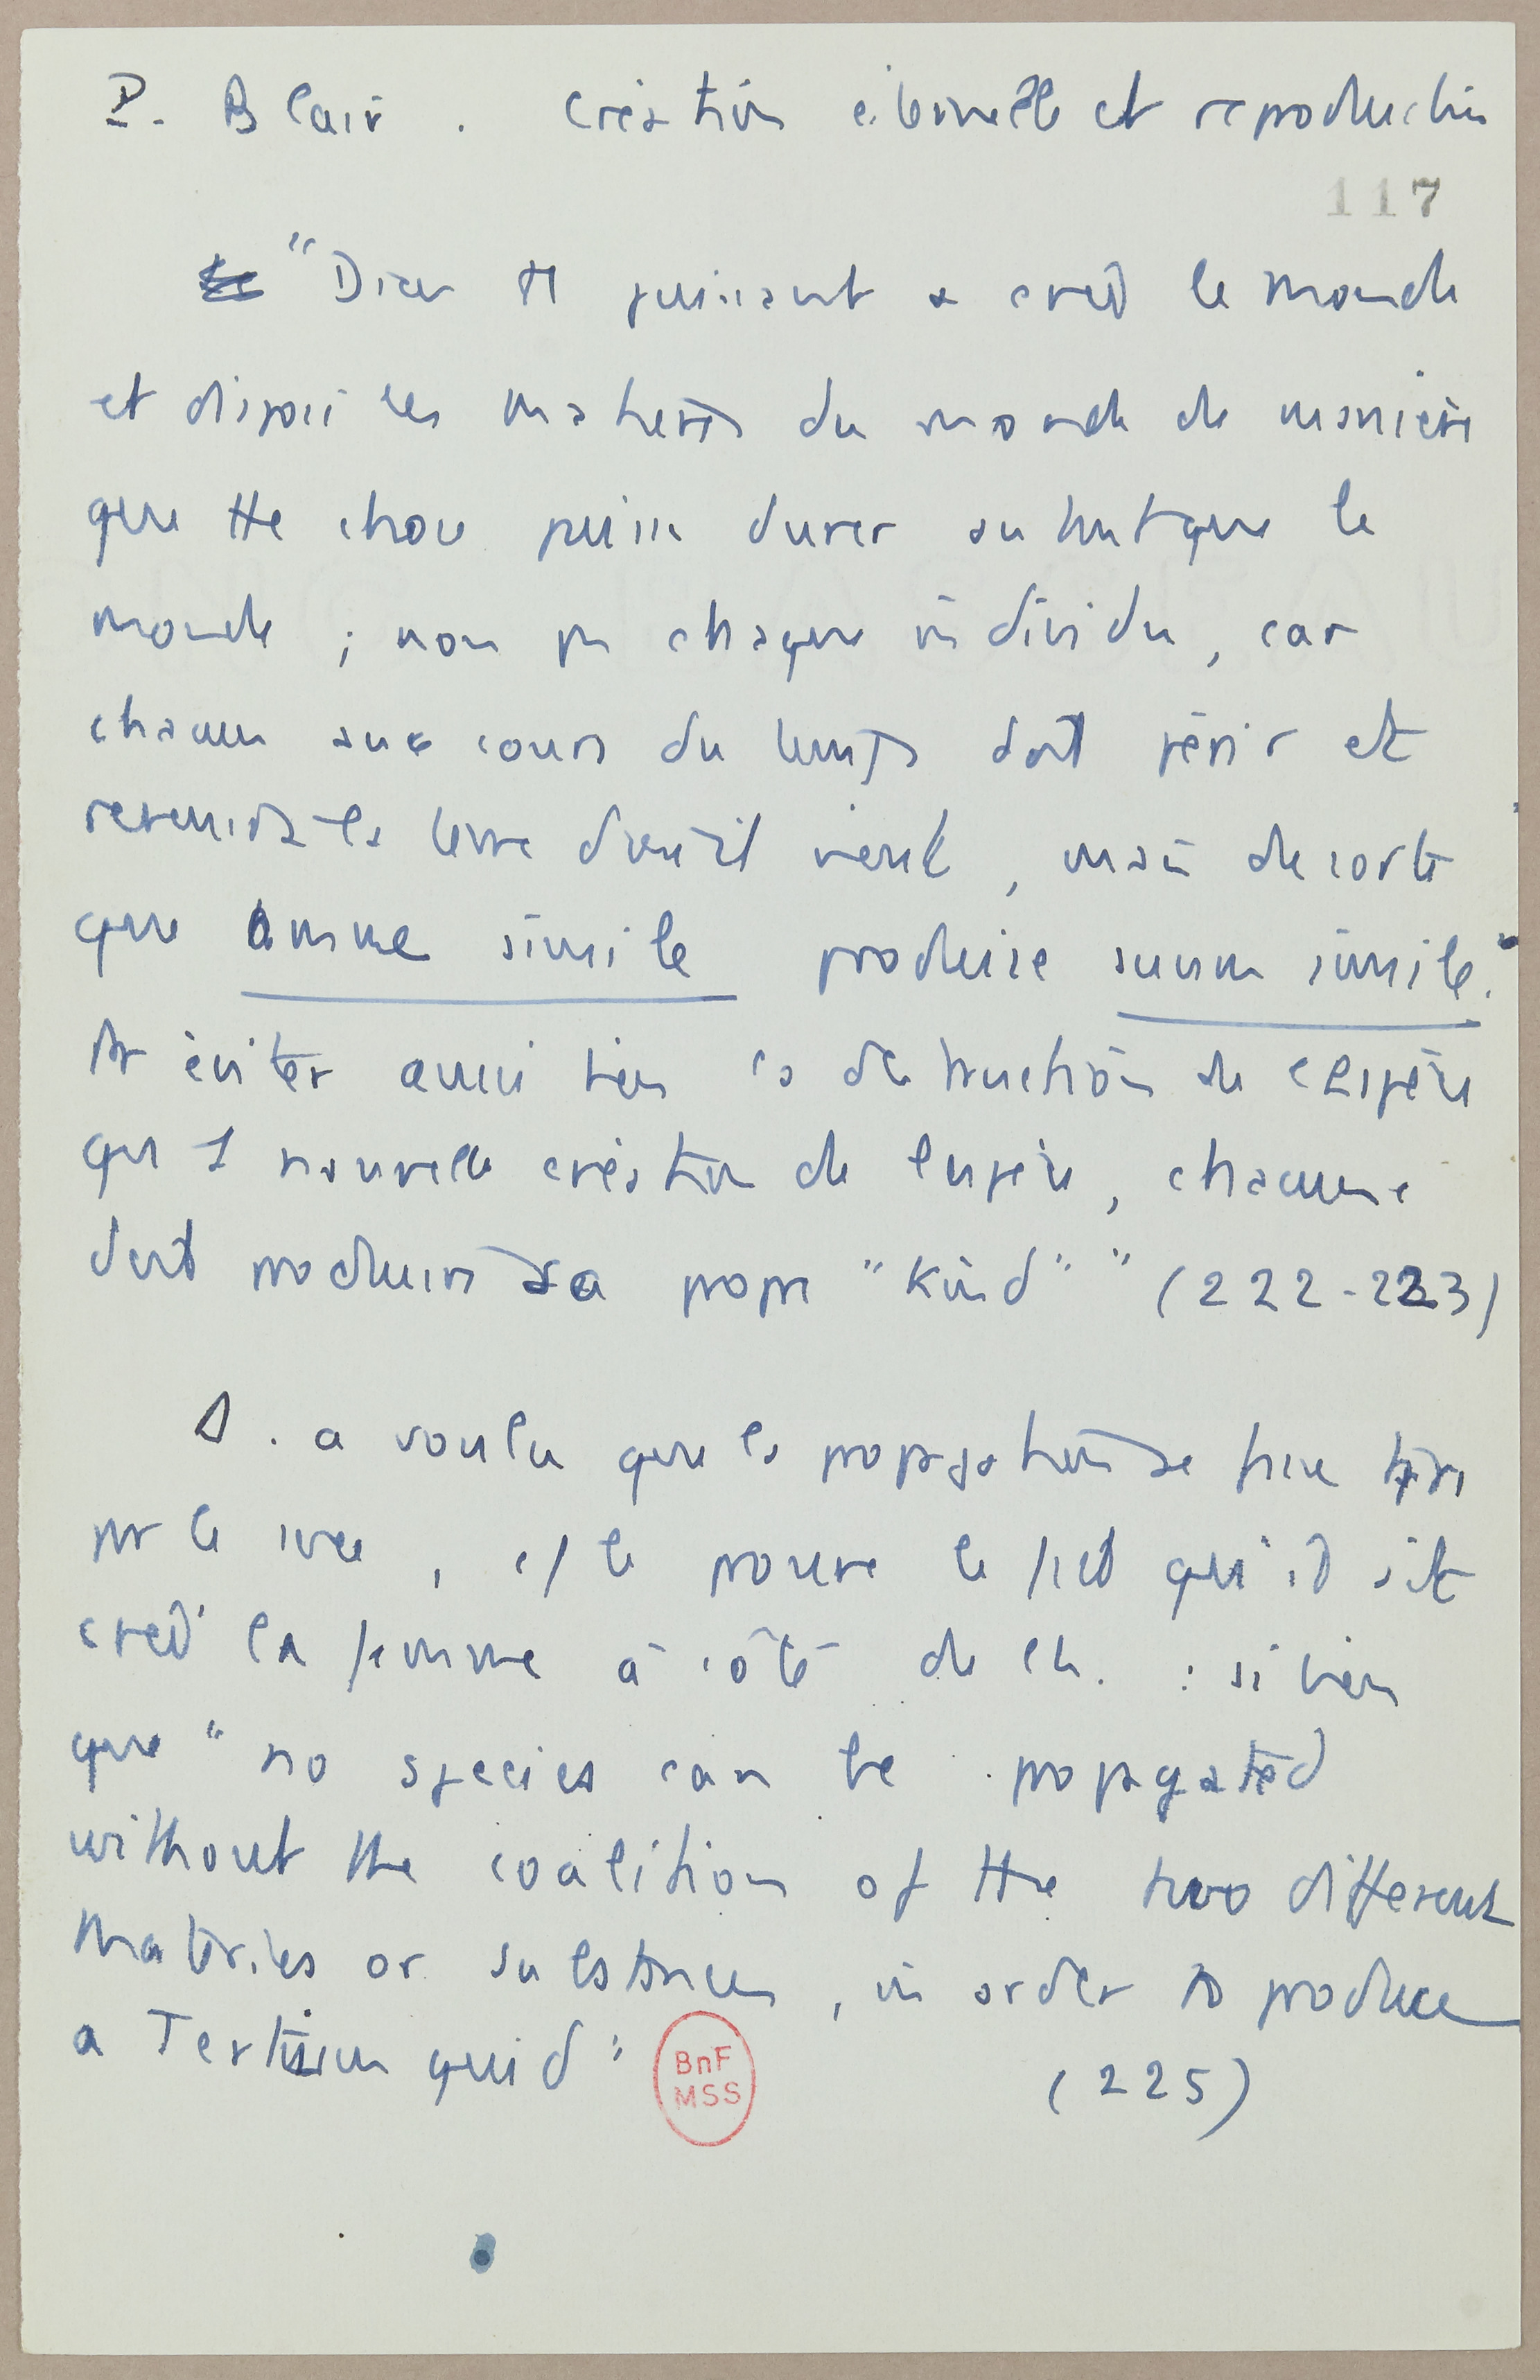 P. Blair . Création éternelle et reproduction
117
"Dieu tt puissant a créé le monde
et disposé les matières du monde de manière
que tte chose puisse durer autant que le
monde ; non pas chaque individu, car
chacun au cours du temps doit périr et
revenir à la terre d'où il vient, mais de sorte
que omne simile produise suum simile."
Pr éviter aussi bien la destruction de l'espèce
que 1 nouvelle création de l'espèce, chacune
doit produire sa propre "Kind" " (222-223)
D. a voulu que la propagation se fasse
par le sexe, le prouve le fait qu'il ait
créé la femme à côté de l'h. : si bien
que "no species can be propagated
without the coalition of the two different
materies or substances, in order to produce
a Tertium quid"
BnF
MSS
(225)